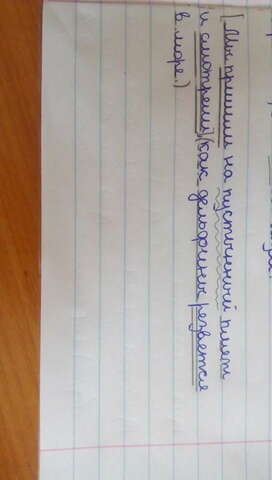 [Мы пришли на пустынный пляж
и смотрели] (как дельфины резвятся
в море.)